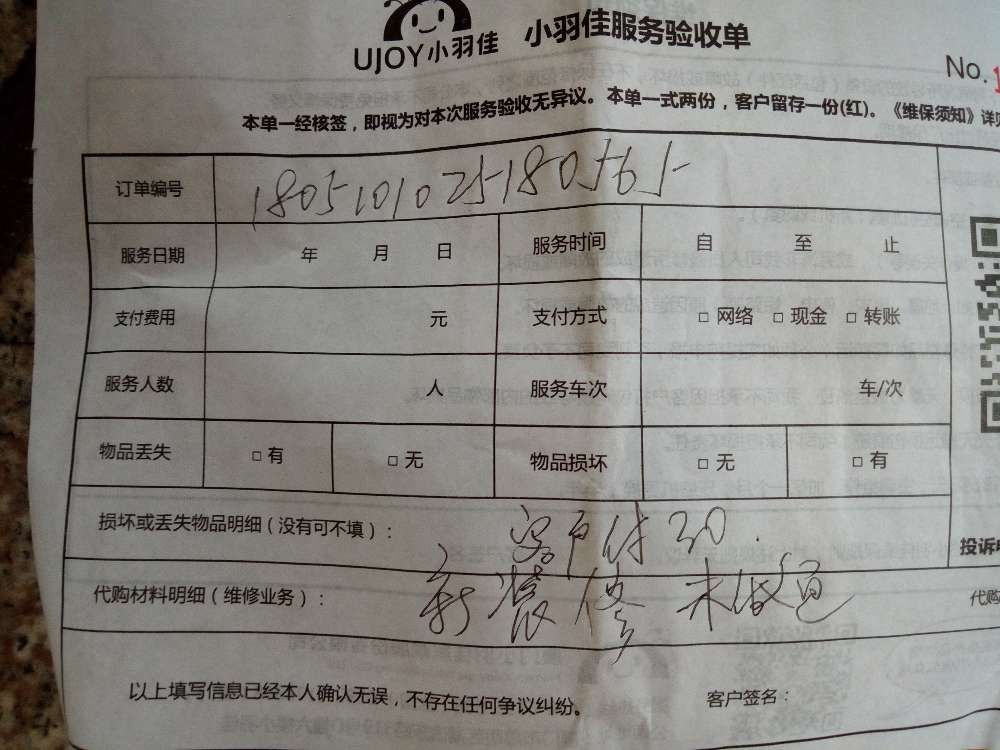 UJOY小羽佳 小羽佳服务验收单
No.1
本单一经核签，即视为对本次服务验收无异议。本单一式两份，客户留存一份(红)。《维保须知》详见
订单编号 180510102518056 5
服务日期 年 月 日 服务时间 自 至 止
支付费用 元 支付方式 □ 网络 □ 现金 □ 转账
服务人数 人 服务车次 车/次
物品丢失 □ 有 □ 无 物品损坏 □ 无 □ 有
损坏或丢失物品明细（没有可不填）： 客户付30.
投诉电
代购材料明细（维修业务）： 新装修 未做
代购
以上填写信息已经本人确认无误，不存在任何争议纠纷。 客户签名：